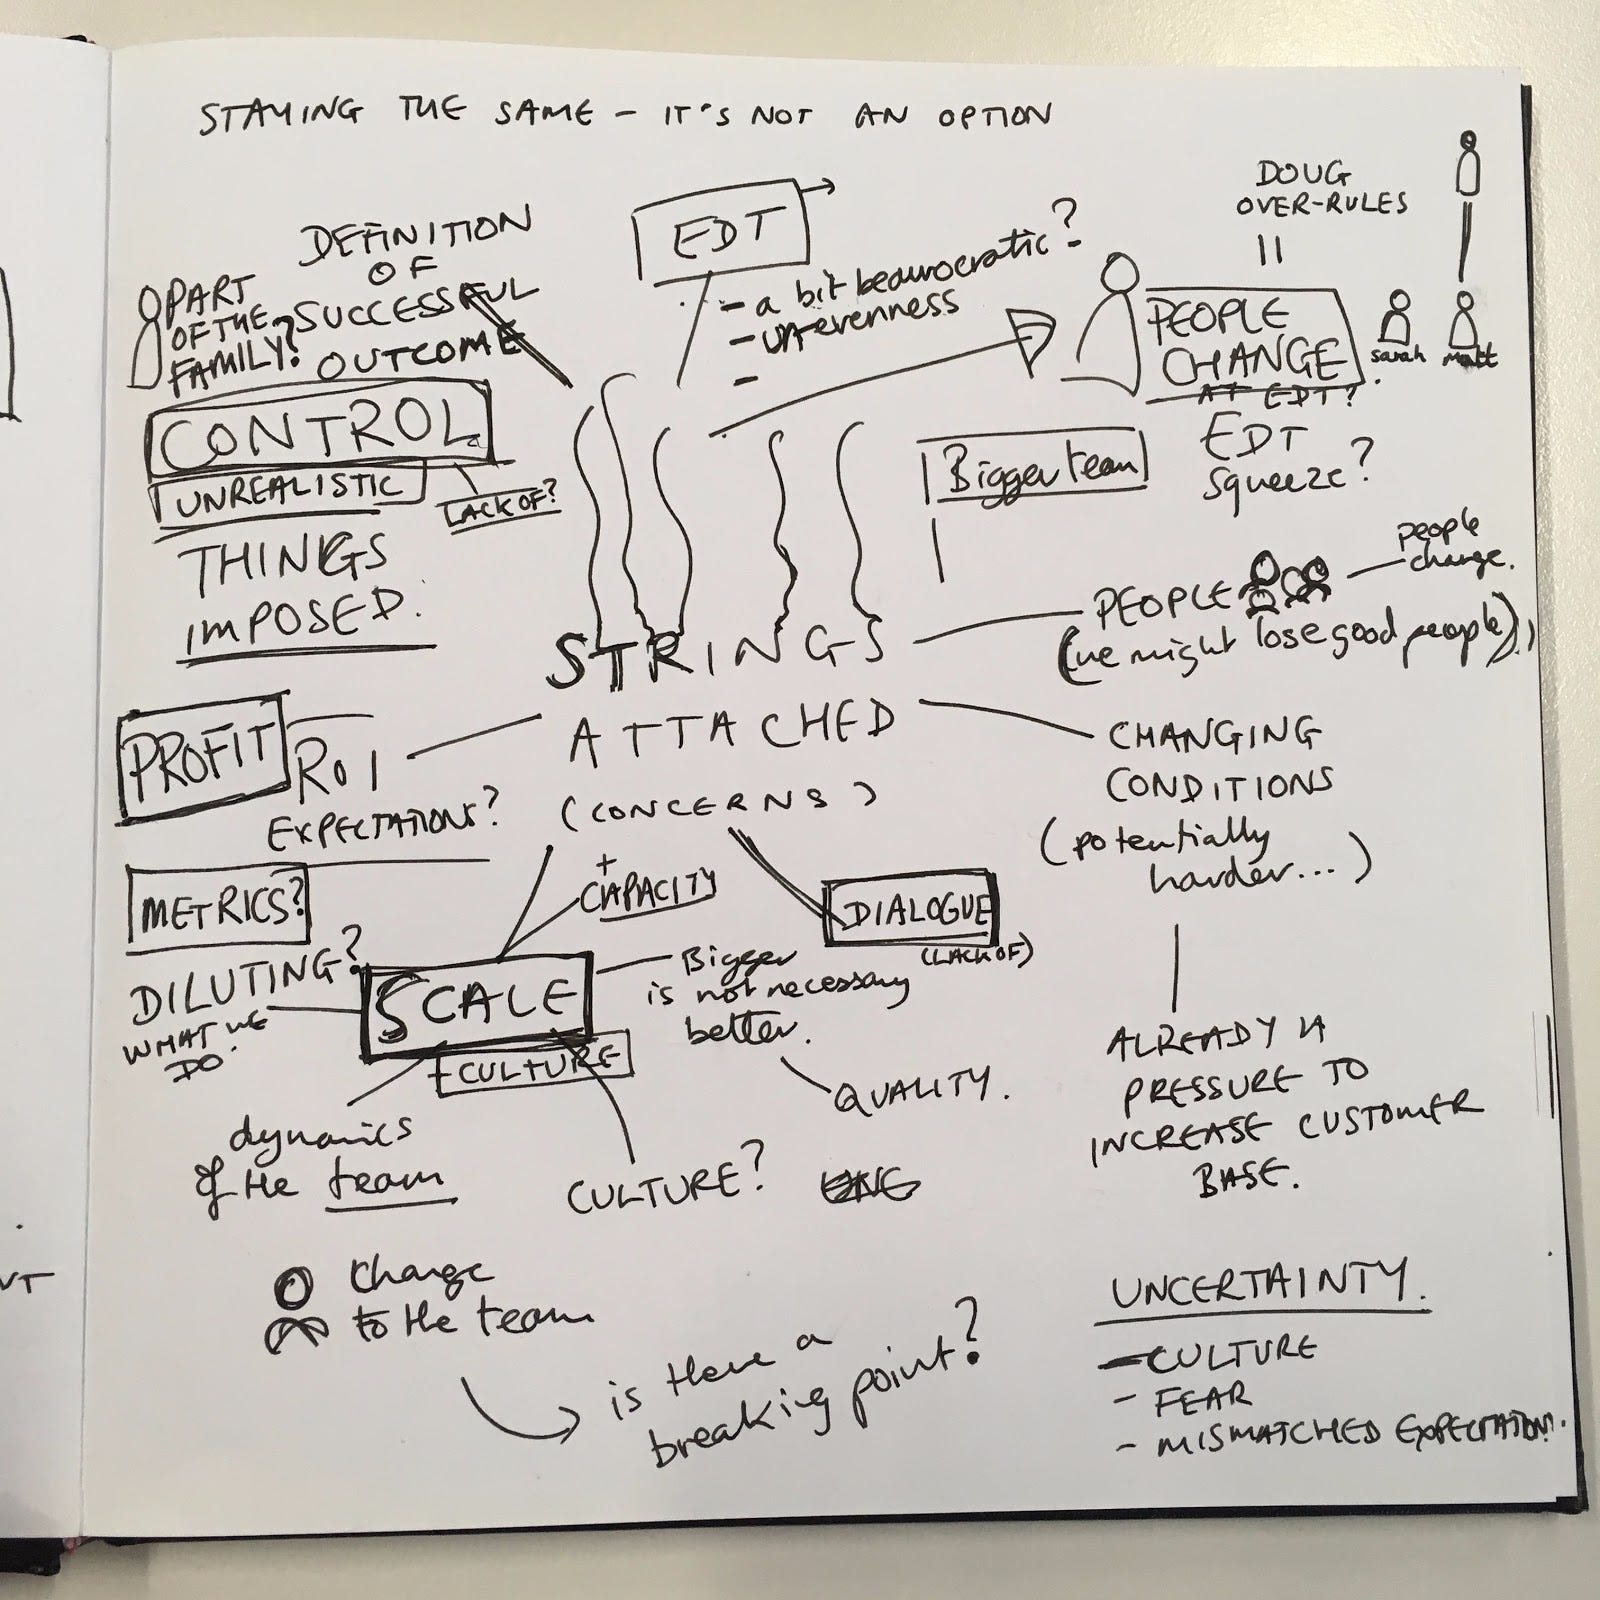 STAYING THE SAME - IT'S NOT AN OPTION
DEFINITION
OF
SUCCESSFUL
OUTCOME
PART
OF THE
FAMILY?
CONTROL
UNREALISTIC
LACK OF?
THINGS
IMPOSED.
EDT
- a bit beaurocratic?
- un-evenness
-
DOUG
OVER-RULES
PEOPLE
CHANGE
AT EDT?
sarah
matt
EDT
squeeze?
Bigger team
PEOPLE
people
change.
(we might lose good people)
STRINGS
ATTACHED
(CONCERNS)
PROFIT
ROI
EXPECTATIONS?
METRICS?
CHANGING
CONDITIONS
(potentially
harder...)
+
CAPACITY
DIALOGUE
(LACK OF)
DILUTING?
WHAT WE
DO.
SCALE
- CULTURE
Bigger
is not necessary
better.
QUALITY.
dynamics
of the team
CULTURE?
ALREADY A
PRESSURE TO
INCREASE CUSTOMER
BASE.
change
to the team
is there a
breaking point?
UNCERTAINTY.
- CULTURE
- FEAR
- MISMATCHED EXPECTATIONS.